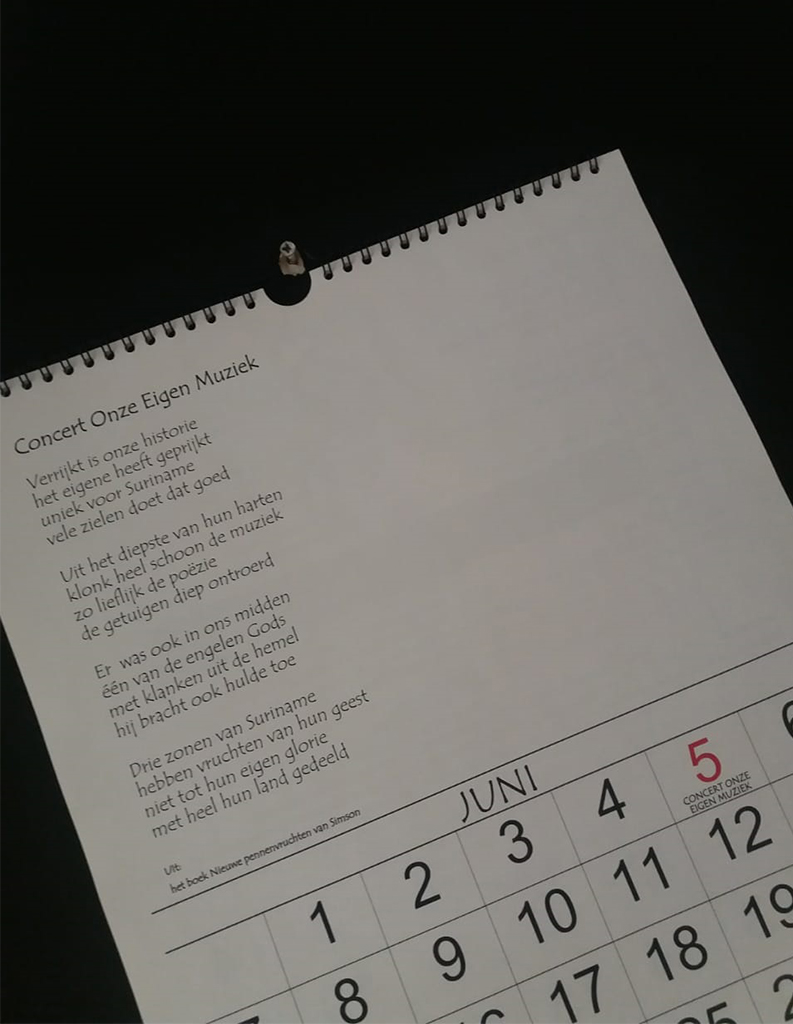 Concert Onze Eigen Muziek
Verrijkt is onze historie
het eigene heeft geprijkt
uniek voor Suriname
vele zielen doet dat goed
Uit het diepste van hun harten
klonk heel schoon de muziek
zo lieflijk de poëzie
de getuigen diep ontroerd
Er was ook in ons midden
één van de engelen Gods
met klanken uit de hemel
hij bracht ook hulde toe
Drie zonen van Suriname
hebben vruchten van hun geest
niet tot hun eigen glorie
met heel hun land gedeeld
Uit:
het boek Nieuwe pennenvruchten van Simson
JUNI
1 2 3 4 5 6
CONCERT ONZE
EIGEN MUZIEK
8 9 10 11 12
17 18 19